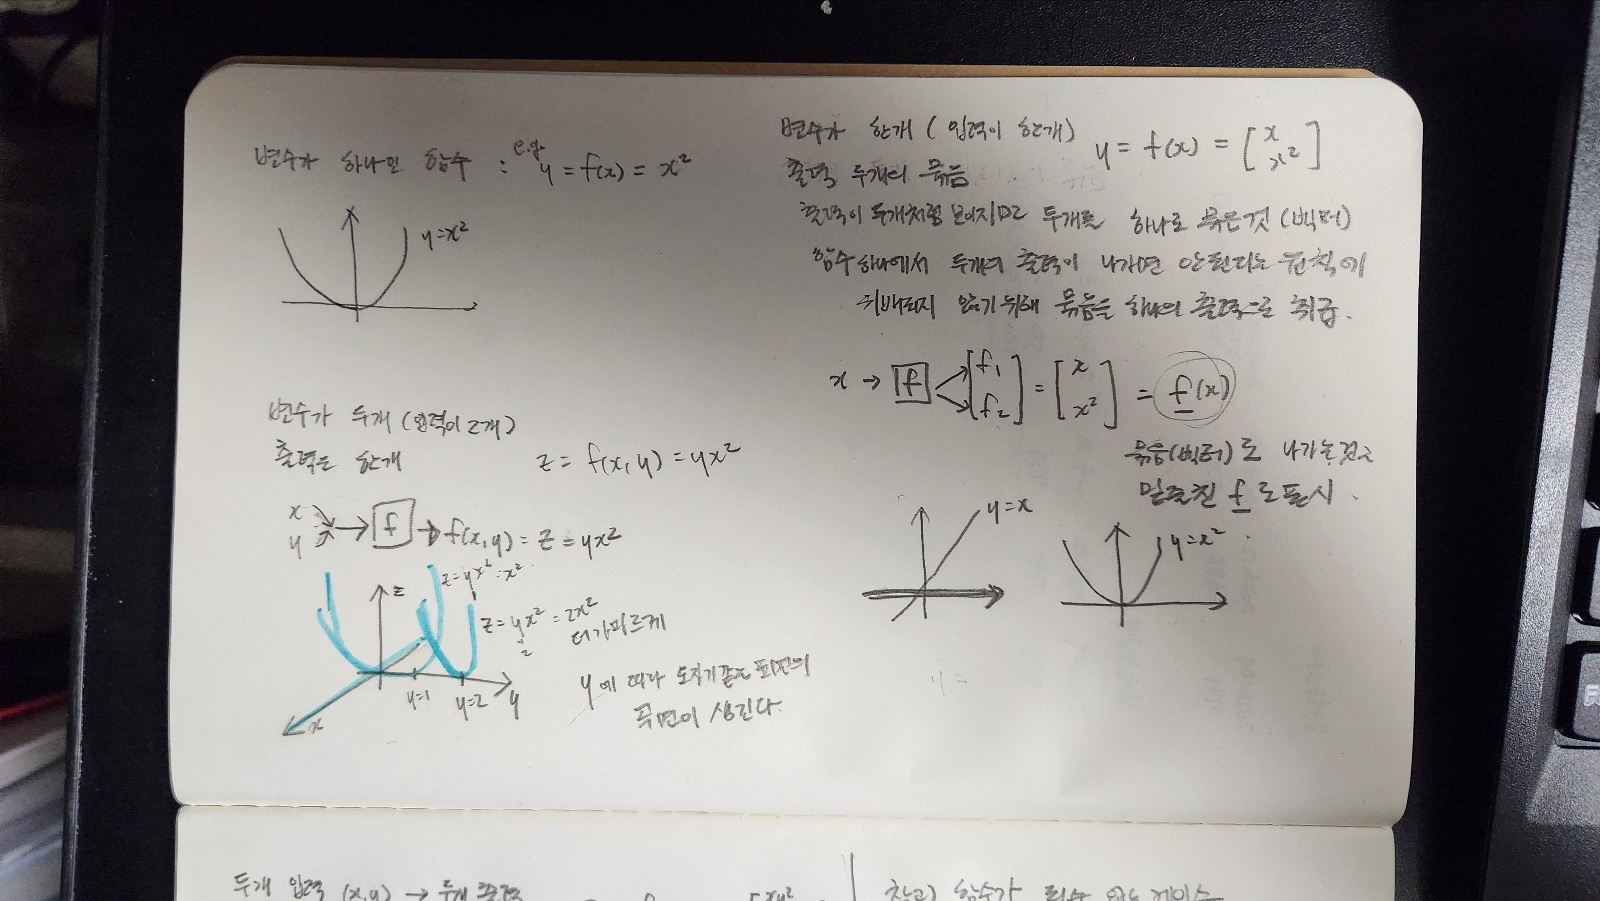 변수가 하나인 함수 : e.g. y = f(x) = x²
y=x²
변수가 두개 (입력이 2개)
출력은 한개 z = f(x, y) = yx²
x
y → f → f(x,y) = z = yx²
z=yx²=x²
z
z=yx²=2x²
2
더 가파르게
y=1 y=2 y
x
y에 따라 도자기 같은 표면의
곡면이 생긴다.
변수가 한개 ( 입력이 한개) y = f(x) = [x x²]
출력 두개의 묶음
출력이 두개처럼 보이지만 두개를 하나로 묶은것 (벡터)
함수 하나에서 두개의 출력이 나가면 안된다는 원칙에
위배되지 않기 위해 묶음을 하나의 출력으로 취급.
x → f [f₁ f₂] = [x x²] = f(x)
묶음(벡터)로 나가는것은
밑줄친 f 로 표시.
y=x
y=x²
y =
두개 입력 (x,y) → 두개 출력
참고) 함수가 될수 없는 케이스